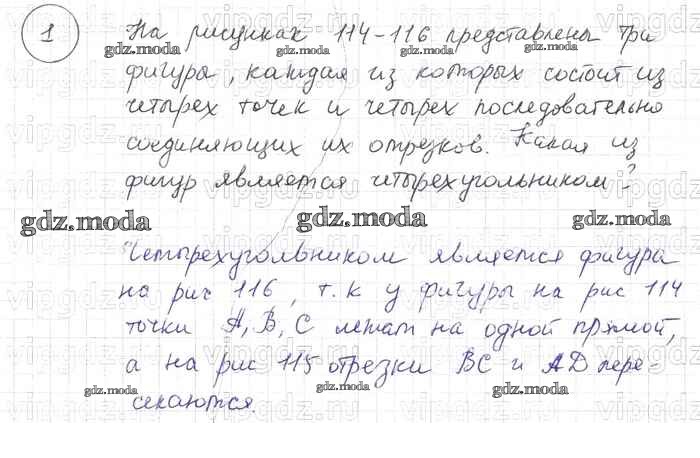 1 На рисунках 114-116 представлены три
фигуры, каждая из которых состоит из
четырех точек и четырех последовательно
соединяющих их отрезков. Какая из
фигур является четырехугольником?
Четырехугольником является фигура
на рис 116, т.к у фигуры на рис 114
точки A, B, C лежат на одной прямой,
а на рис 115 отрезки BC и AD пере-
секаются.
gdz.moda
vipgdz.ru